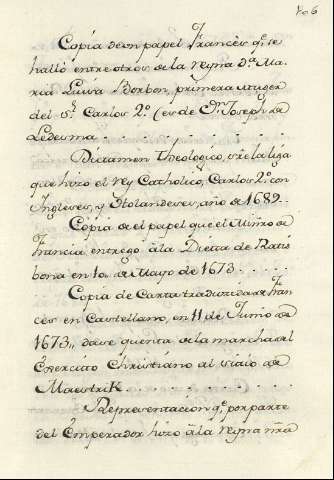 Fo. 6
Copia de un papel Francès q.e se
hallò entre otros de la reyna D.a Ma-
ria Luisa Borbon, primera Muger
del S.r Carlos 2.o (es de D.n Joseph de
Ledesma
Dictamen Theologico, sre la liga
que hizo el rey Catholico, Carlos 2.o con
Ingleses, y Holandeses, año de 1689.
Copia de el papel que el Minro de
Francia entrego à la Dietta de Ratis
bona en 1o de Mayo de 1673
Copia de Carta traduzida de Fran
ces en Castellano, en 11 de Junio de
1673,, dase quenta de la marcha del
Exercito Christiano al sitio de
Mastrik
Representacion q.e por parte
del Emperador hizo à la reyna nra